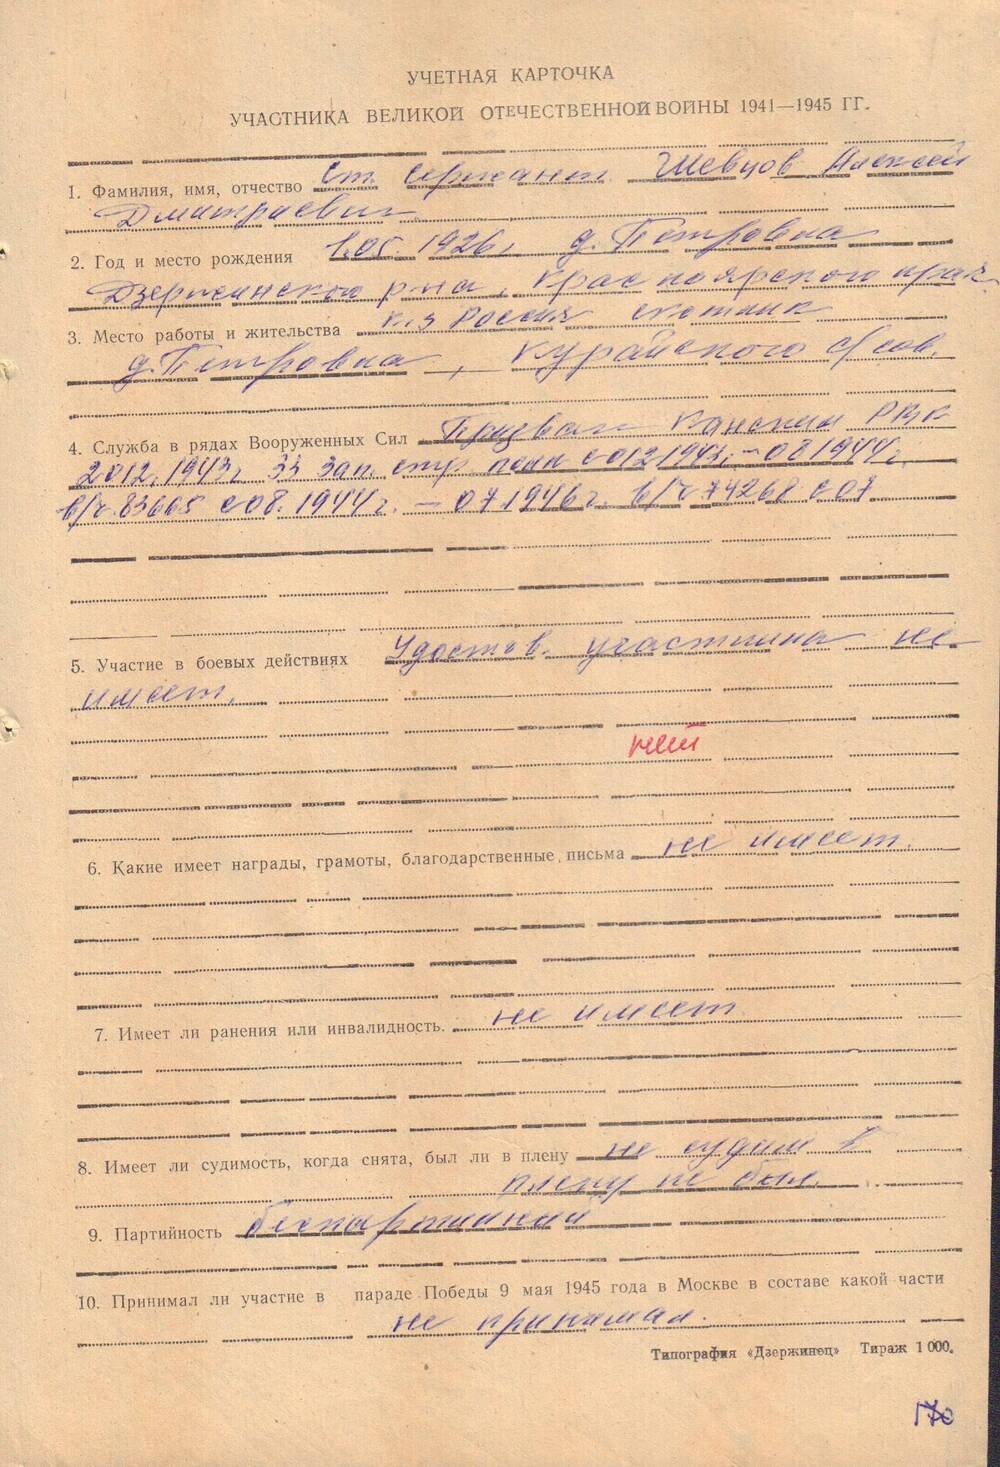 УЧЕТНАЯ КАРТОЧКА
УЧАСТНИКА ВЕЛИКОЙ ОТЕЧЕСТВЕННОЙ ВОЙНЫ 1941—1945 ГГ.
1. Фамилия, имя, отчество Ст. Сержант Шевцов Алексей
Дмитриевич
2. Год и место рождения 1.05. 1926г. д. Петровка
Дзержинского р-на, Красноярского края
3. Место работы и жительства к-з Россия скотник
д. Петровка, Курайского с/сов.
4. Служба в рядах Вооруженных Сил Призван Канским РВК
2012.1943г. 33 зап. стр полк с 012 1943г. — 08 1944г.
в/ч. 83665 с 08. 1944г. — 07.1946г. в/ч 74268 с 07
5. Участие в боевых действиях Удостов. участника не
имеет.
нет
6. Какие имеет награды, грамоты, благодарственные, письма не имеет.
7. Имеет ли ранения или инвалидность. не имеет
8. Имеет ли судимость, когда снята, был ли в плену не судим в
плену не был.
9. Партийность беспартийный
10. Принимал ли участие в параде Победы 9 мая 1945 года в Москве в составе какой части
не принимал.
Типография «Дзержинец» Тираж 1 000.